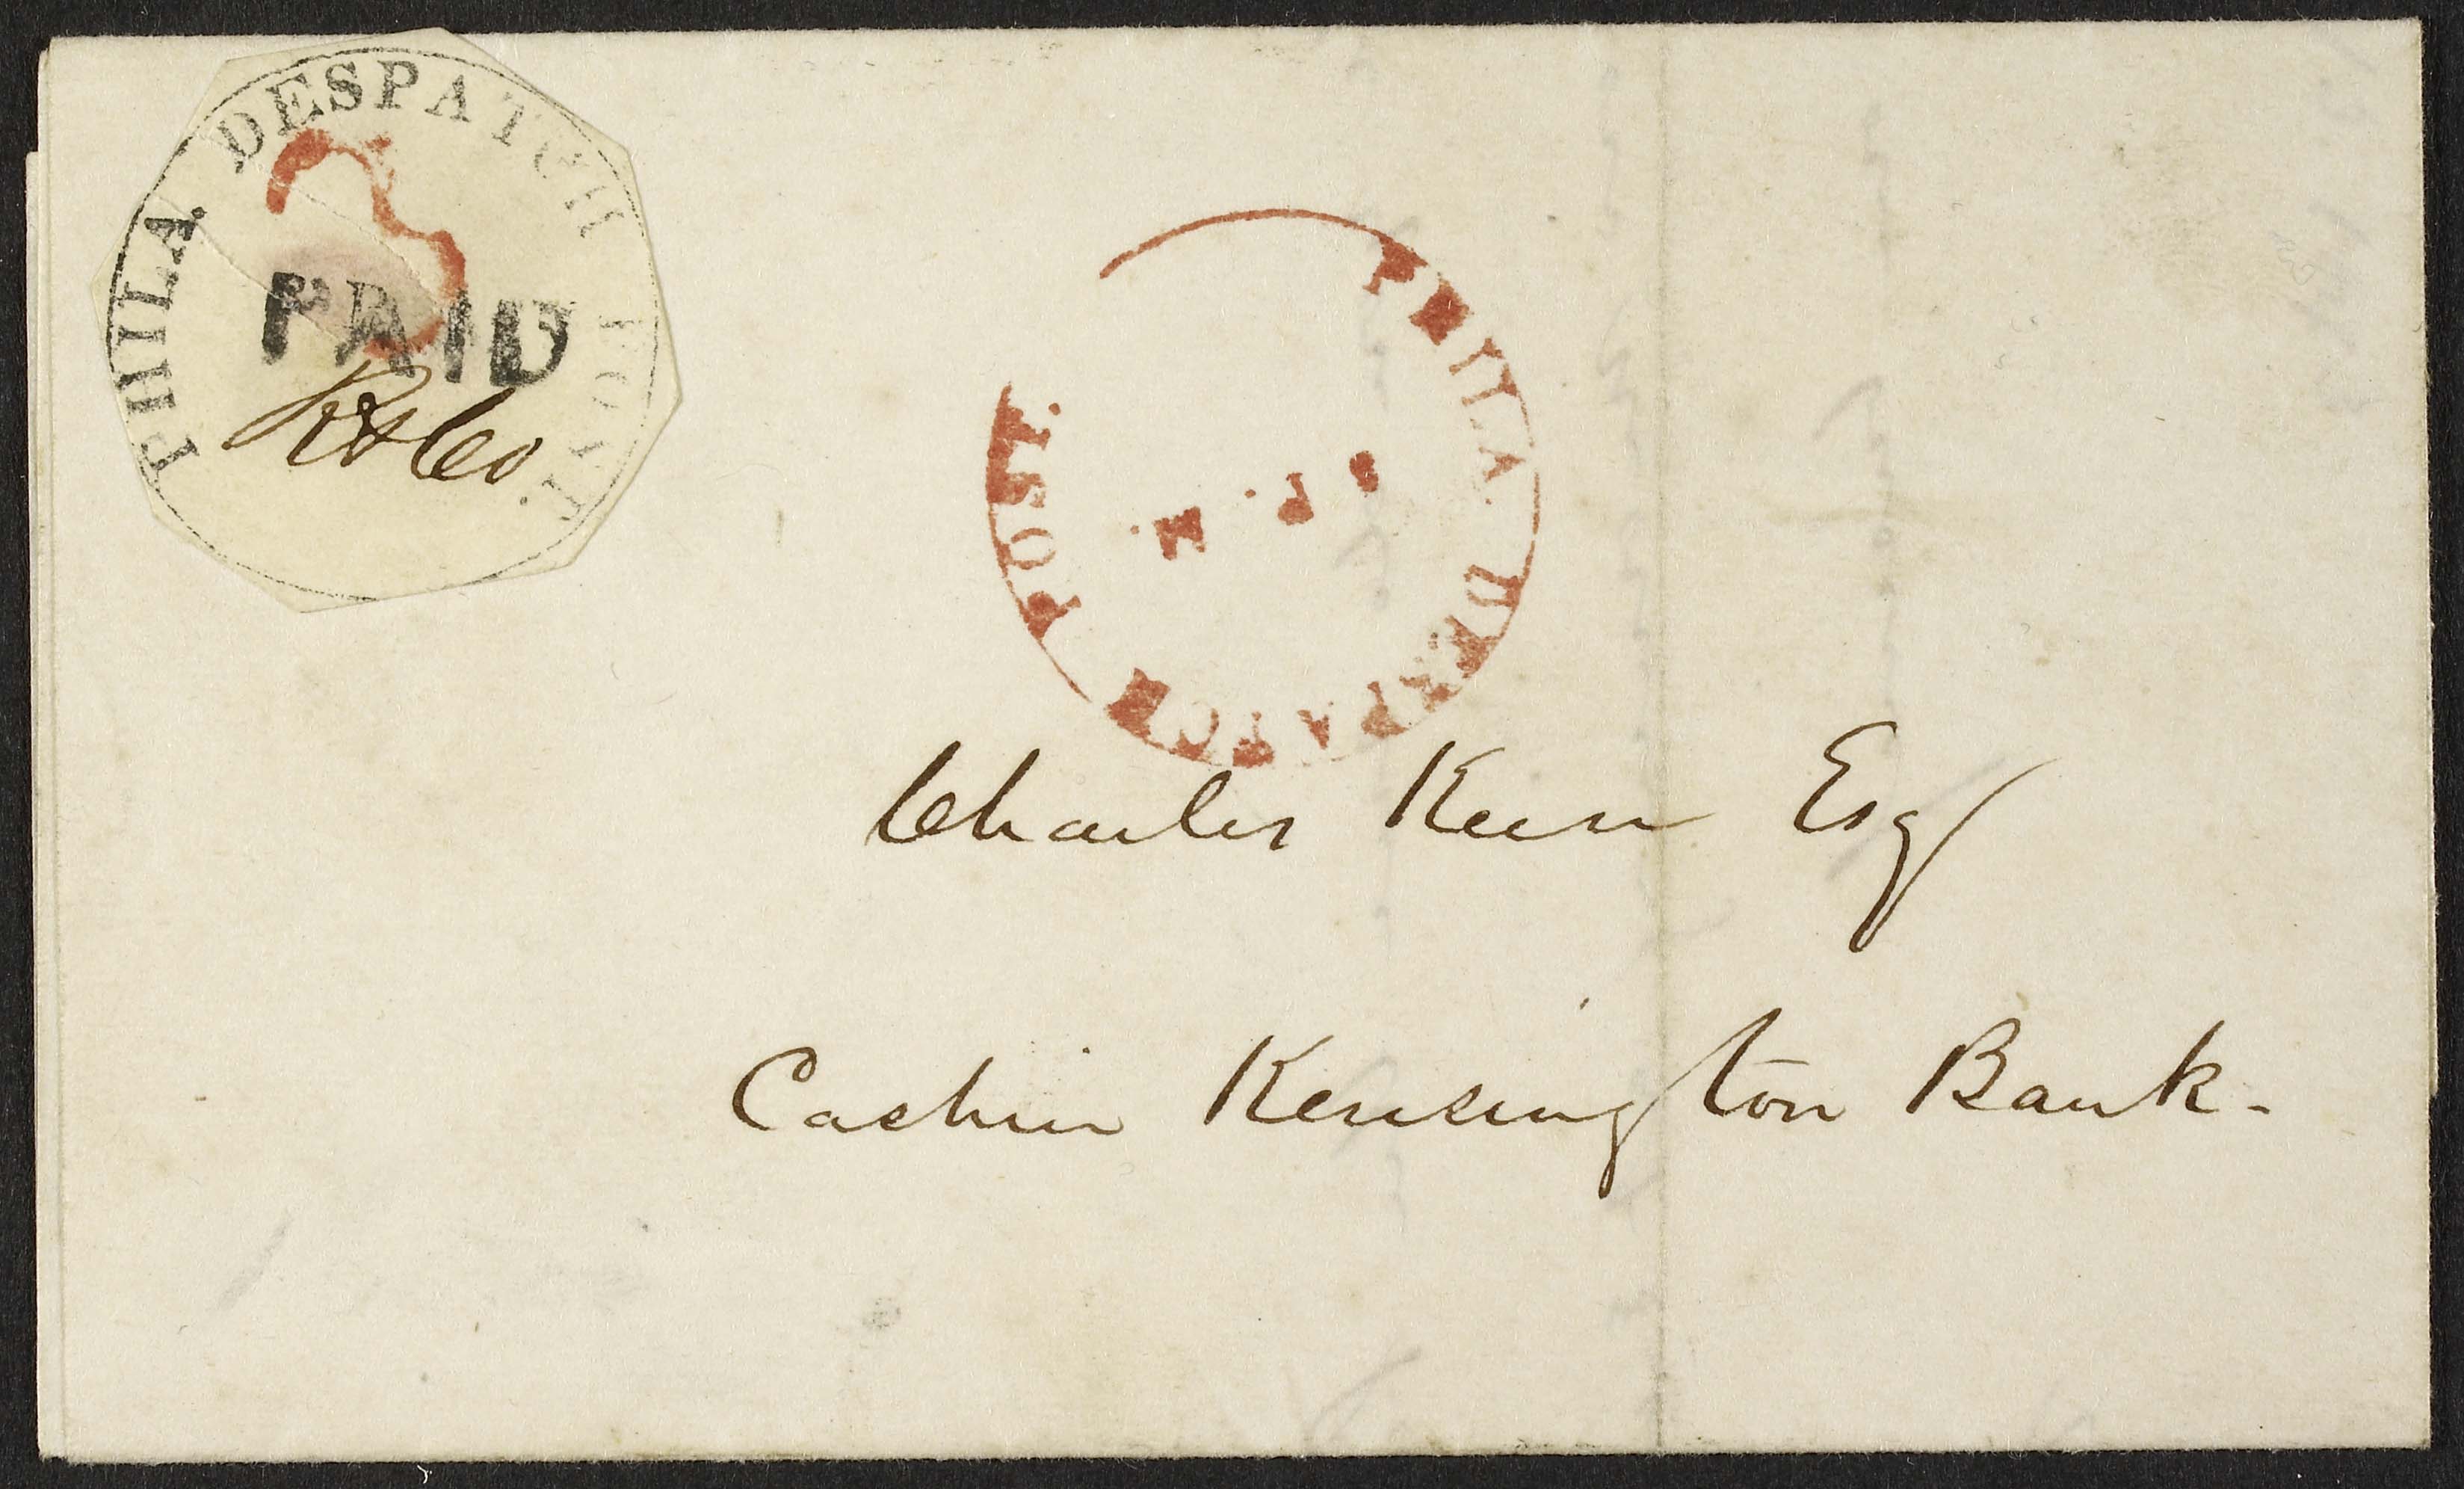 PHILA. DESPATCH POST.
3
PAID
R & Co
PHILA DESPATCH POST.
P. M.
Charles Keen Esq
Cashier Kensington Bank.